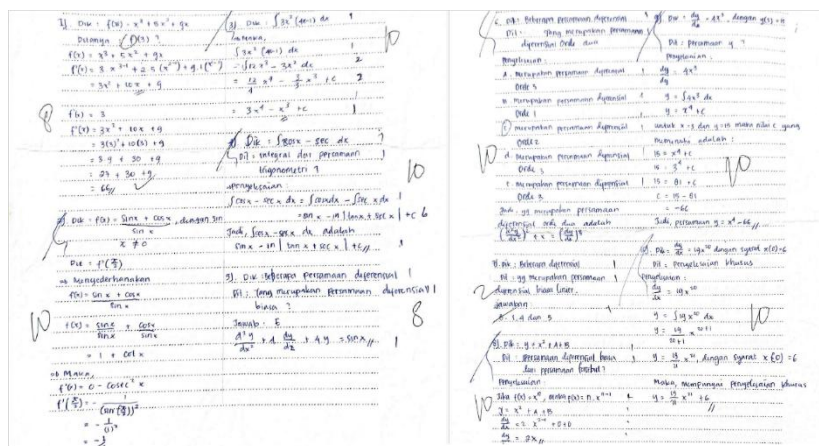 1) Dik : f(x) = x³ + 5x² + 9x
Ditanya f'(3) ?
f(x) = x³ + 5x² + 9x
= 3x² + 10x + 9
f'(x) = 3
f'(x) = 3x² + 10x + 9
= 3(3)² + 10(3) + 9
= 27 + 30 + 9
= 66 //
8
2) Dik : f(x) = sin x + cos x / sin x , dengan sin
x ≠ 0
Dit = f'(π/2)
⇒ Menyederhanakan
f(x) = sin x + cos x / sin x
f(x) = sin x / sin x + cos x / sin x
= 1 + cot x
⇒ Maka,
f'(x) = 0 - cosec² x
f'(π/2) = - 1 / (sin(π/2))²
= - 1/(1)²
10
3) Dik : ∫ 3x² (4x-1) dx
Maka,
∫ 3x² (4x-1) dx
= ∫ 12x³ - 3x² dx
= 12/4 x⁴ - 3/3 x³ + c
= 3x⁴ - x³ + c
10
4) Dik : ∫ cos x - sec x dx
Dit : integral dari persamaan
trigonometri ?
Penyelesaian
∫ cos x - sec x dx = ∫ cos x dx - ∫ sec x dx
= sin x - ln | tan x + sec x | + c
Jadi, ∫ cos x - sec x dx adalah
sin x - ln | tan x + sec x | + c //
10
5) Dik : Beberapa persamaan diferensial
Dit : Yang merupakan persamaan diferensial
biasa ?
Jawab : E
d²y/dx² + 4 dy/dx + 4y = sin x //
8
6. Dit : Beberapa persamaan diferensial
Dit : Yang merupakan persamaan
diferensial Orde dua
Penyelesaian :
a. Merupakan persamaan diferensial
Orde 3
b. merupakan persamaan diferensial
Orde 1
c. merupakan persamaan diferensial
Orde 2
d. Merupakan persamaan diferensial
Orde 3
merupakan persamaan diferensial
Orde 3
Jadi, yg merupakan persamaan
diferensial orde dua adalah
10
Dik : Beberapa diferensial
Dit : yg merupakan persamaan
diferensial biasa linier.
Jawaban
B. 1, 4 dan 5
2
8). Dik : y = x² + A + B
Dit : persamaan diferensial biasa
dari persamaan tersebut?
Penyelesaian
Jika f(x) = xⁿ, maka f'(x) = n. xⁿ⁻¹
y = x² + A + B
dy/dx = 2 x²⁻¹ + 0 + 0
dy/dx = 2x //
10
Dik : dy/dx = 4x³, dengan y(3) = 15
Dit : persamaan y ?
Penyelesaian.
= 4x³
y = ∫ 4x³ dx
y = x⁴ + c
untuk x = 3 dan y = 15 maka nilai c yang
memenuhi adalah :
15 = x⁴ + c
15 = 3⁴ + c
15 = 81 + c
c = 15 - 81
= -66
Jadi, persamaan y = x⁴ - 66 //
10
Dik : dy/dx = 19x²⁰ dengan syarat x(0) = 6
Dit : Penyelesaian khusus
Penyelesaian :
dy/dx = 19x²⁰
y = ∫ 19x²⁰ dx
y = 19/20+1 x²⁰⁺¹
dengan syarat x(0) = 6
Maka, mempunyai penyelesaian khusus
y = 19/21 x²¹ + 6 //
10